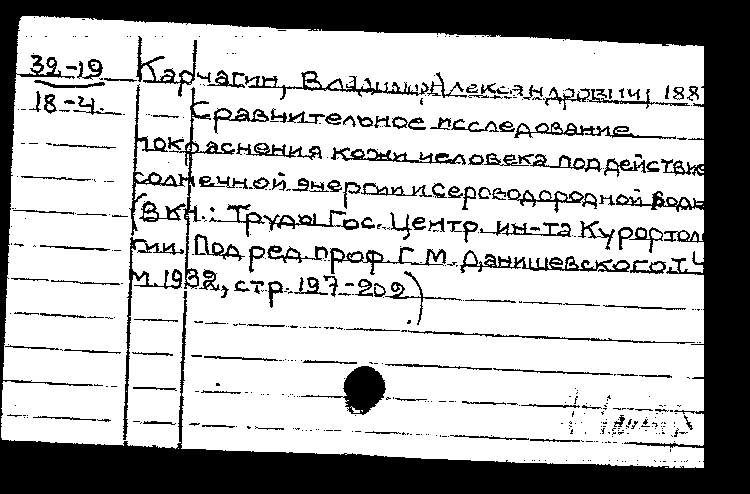 32-19 Карчагин, Владимир Александрович, 188
18-4. Сравнительное исследование
покраснения кожи человека под действие
солнечной энергии и сероводородной воды
(В кн.: Труды Гос. Центр. ин-та Курортоло
гии. Под ред. проф. Г.М. Данишевского. т. 4
М. 1932, стр. 197-202)